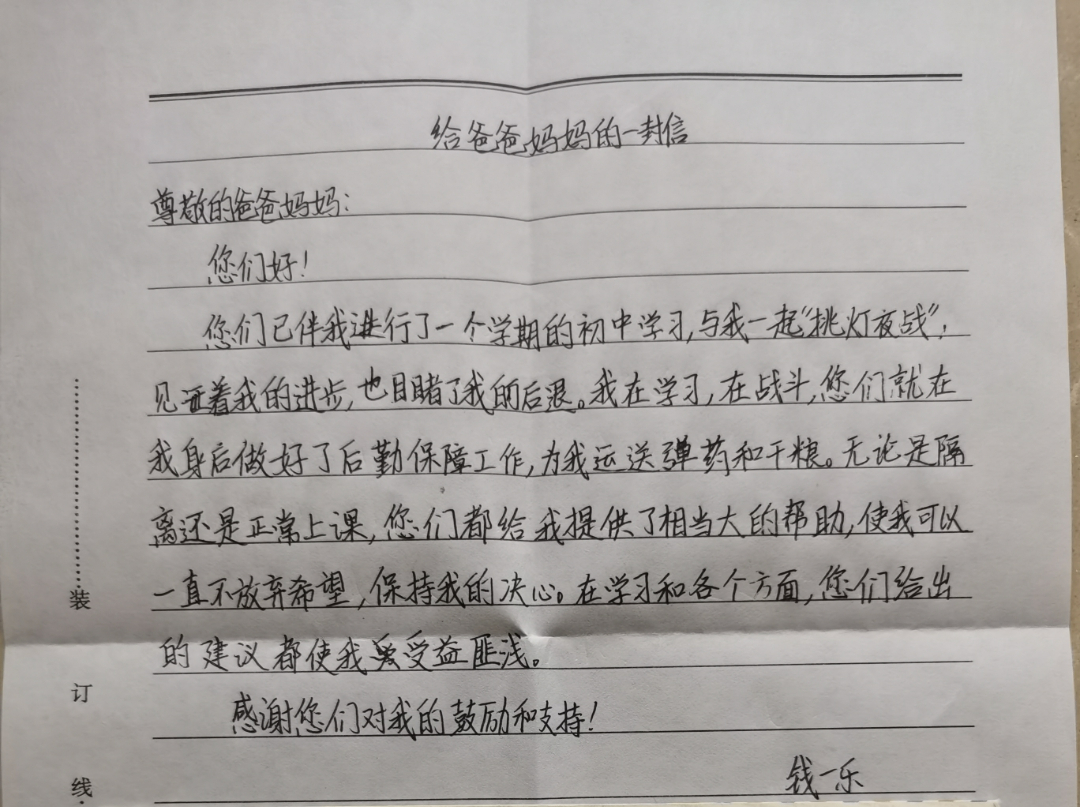 给爸爸妈妈的一封信
尊敬的爸爸妈妈：
您们好！
您们已伴我进行了一个学期的初中学习，与我一起“挑灯夜战”，
见证着我的进步，也目睹了我的后退。我在学习，在战斗，您们就在
我身后做好了后勤保障工作，为我运送弹药和干粮。无论是隔
离还是正常上课，您们都给我提供了相当大的帮助，使我可以
一直不放弃希望，保持我的决心。在学习和各个方面，您们给出
的建议都使我受益匪浅。
感谢您们对我的鼓励和支持！
钱一乐
装
订
线